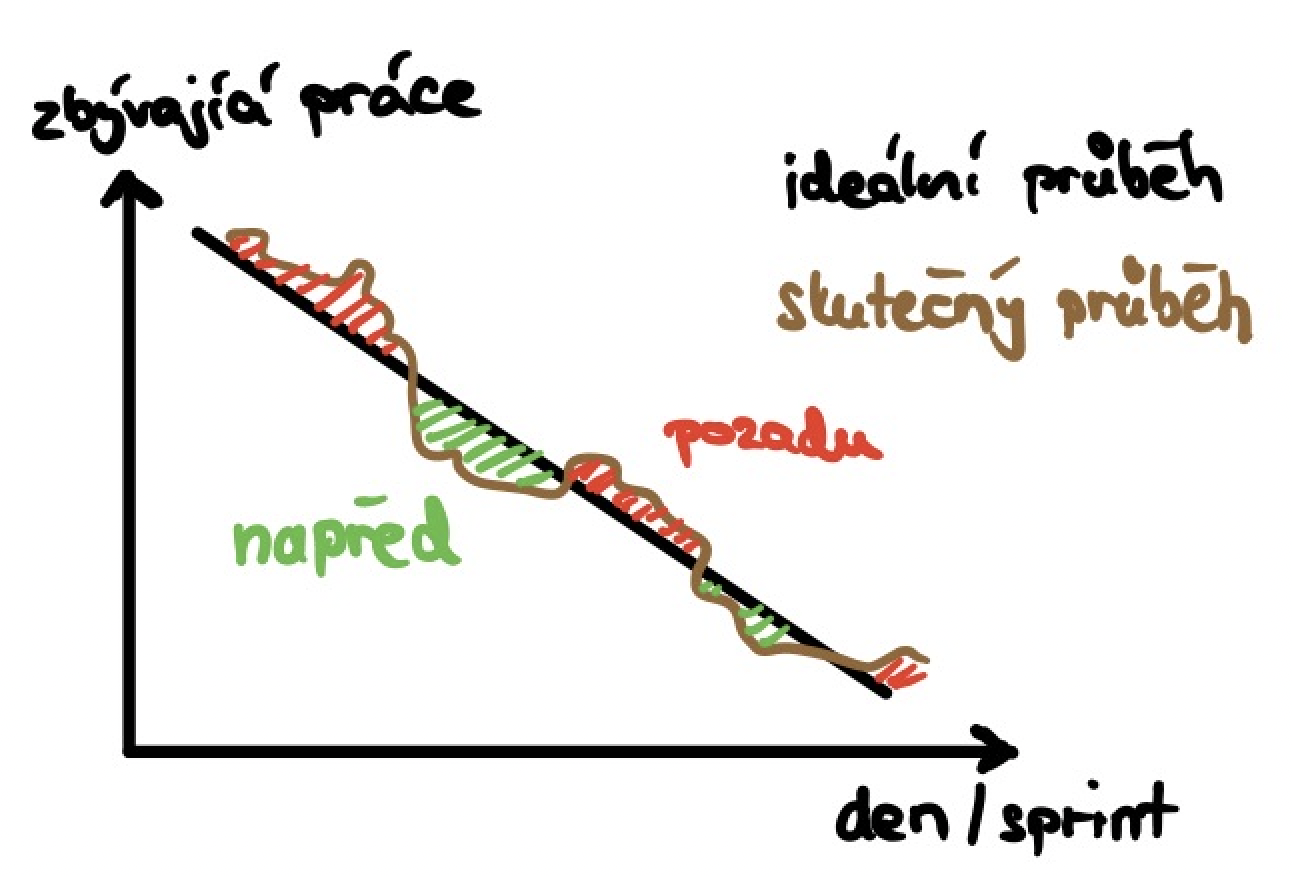 zbývající práce
ideální průběh
skutečný průběh
pozadu
napřed
den / sprint